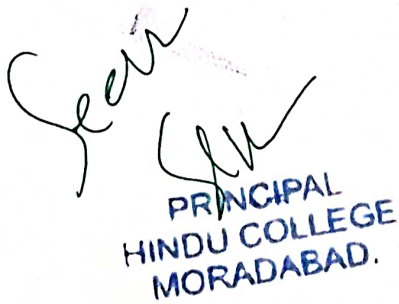 Seen
PRINCIPAL
HINDU COLLEGE
MORADABAD.